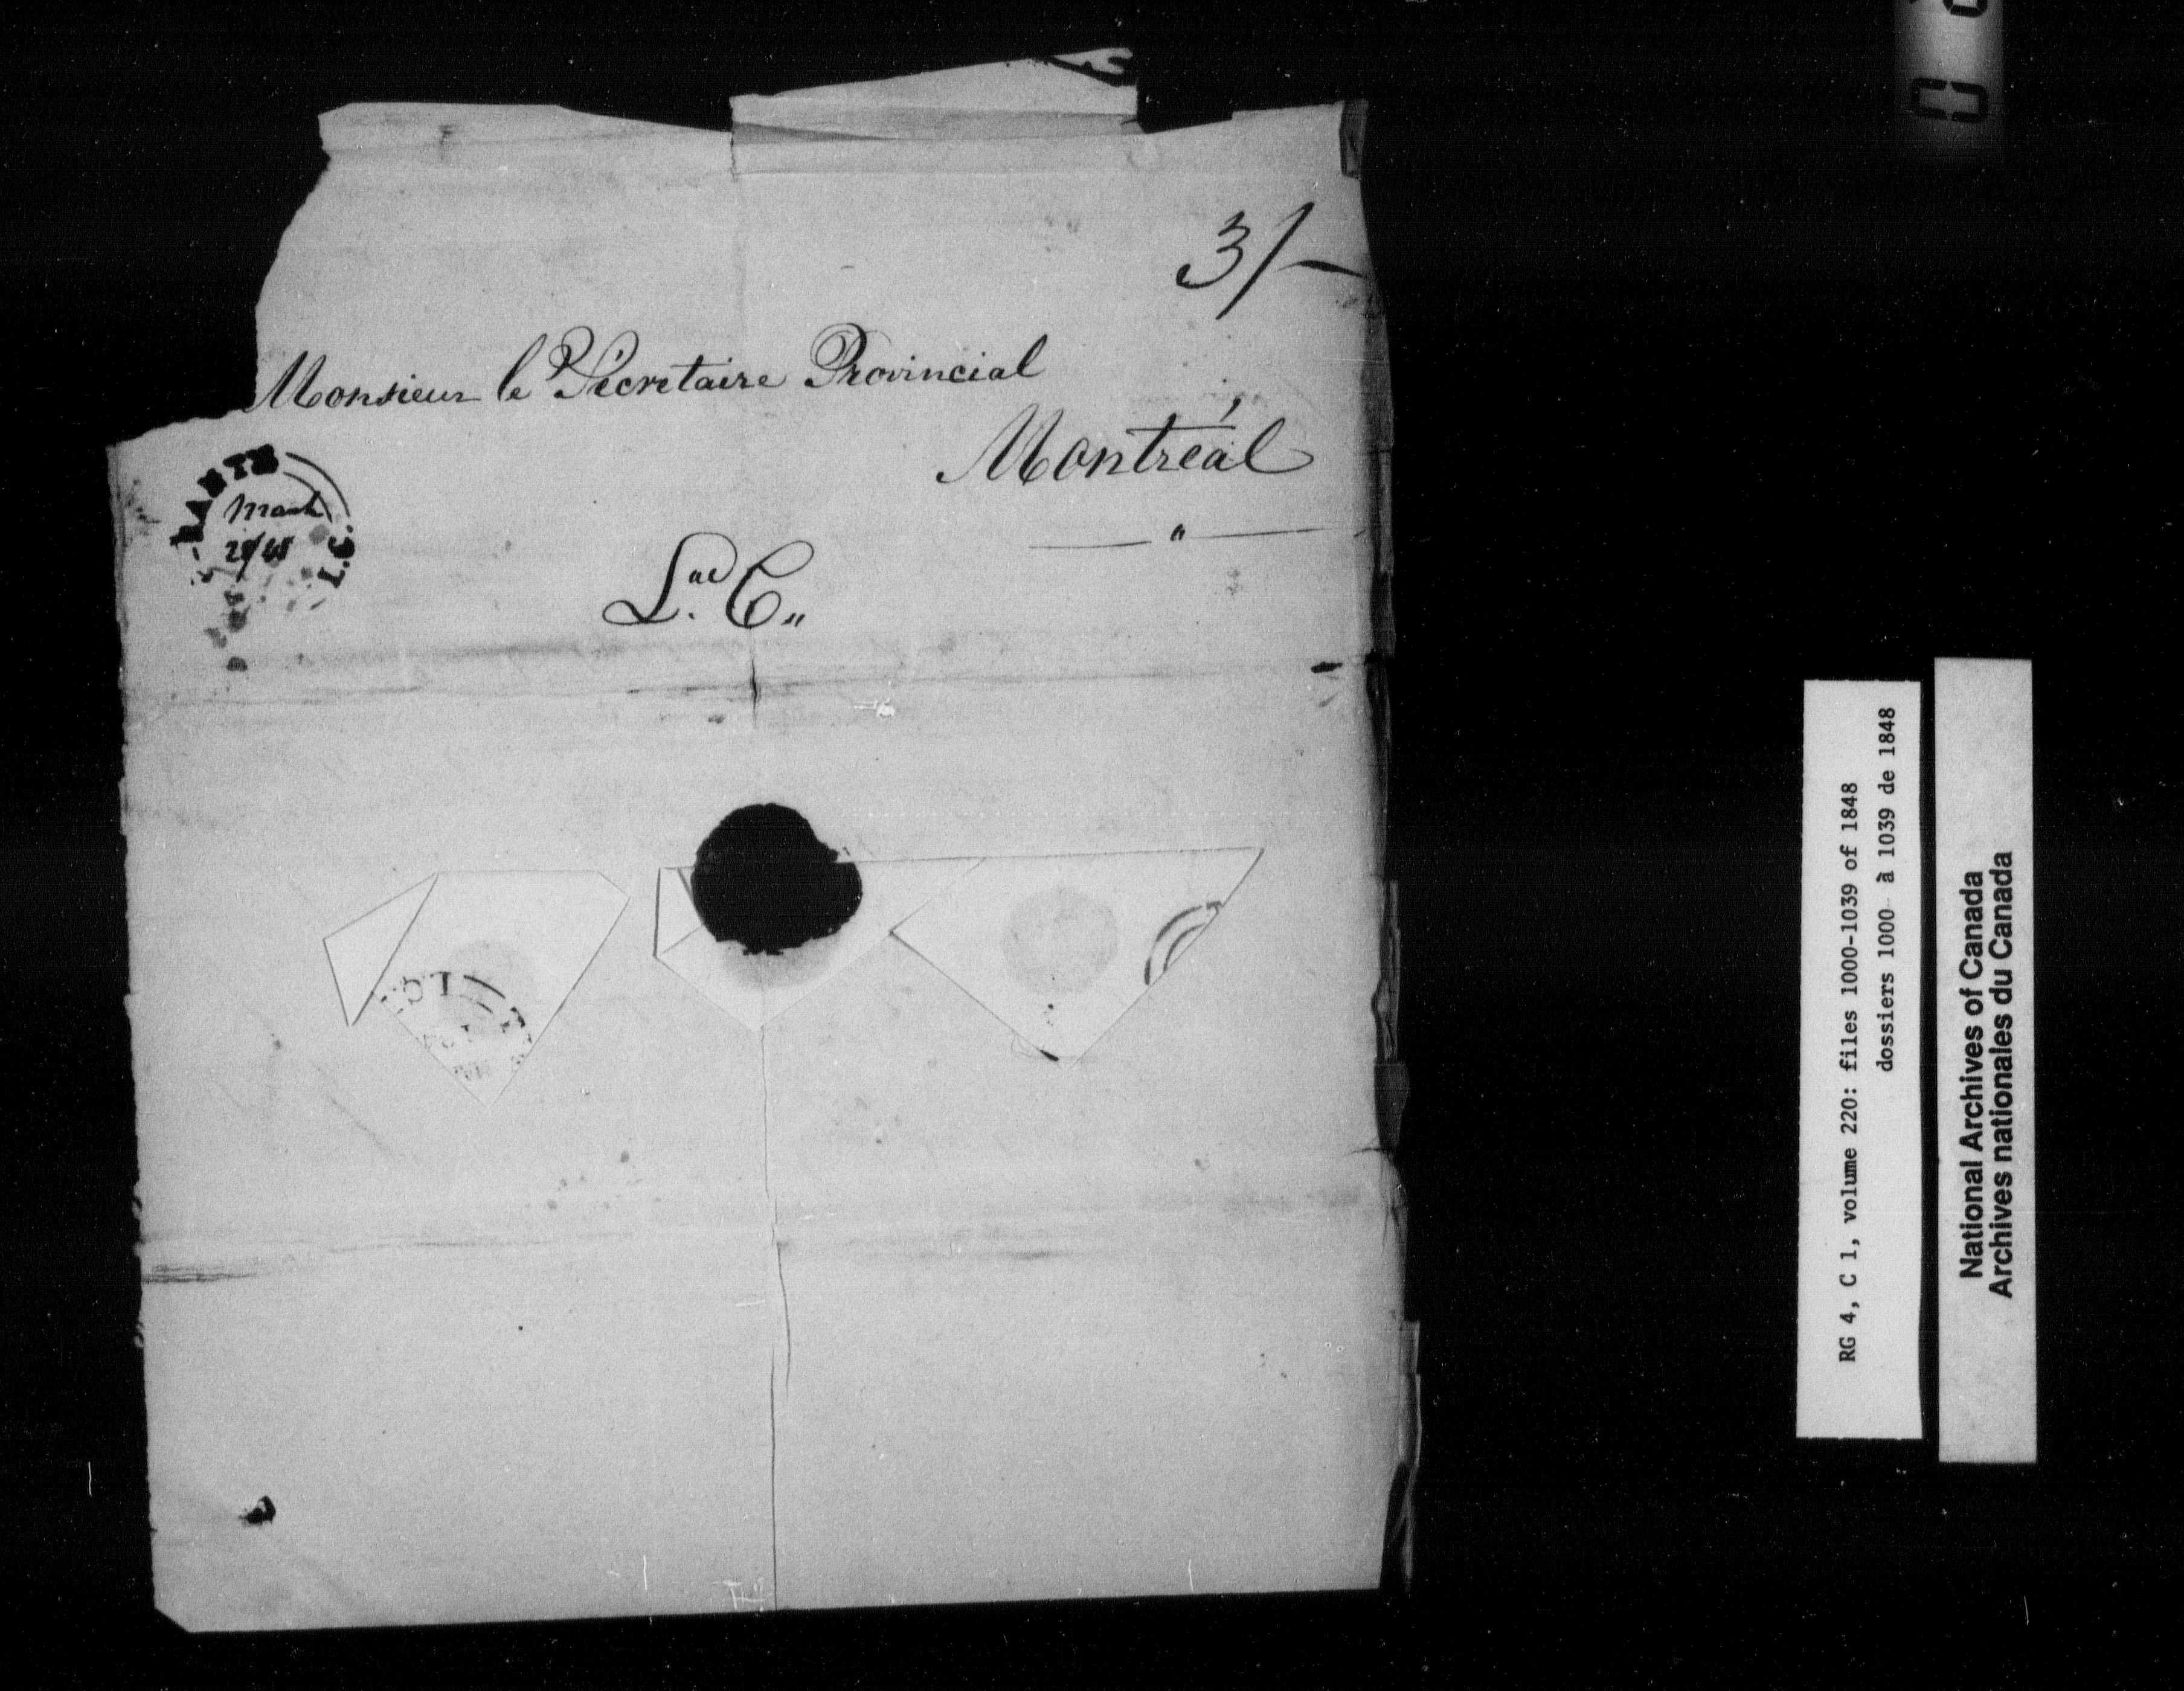 3/-
Monsieur le Sécretaire Provincial
Montréal
"
March
28/48
L.C.
Lac C.
RG 4, C 1, volume 220: files 1000-1039 of 1848
dossiers 1000- à 1039 de 1848
National Archives of Canada
Archives nationales du Canada